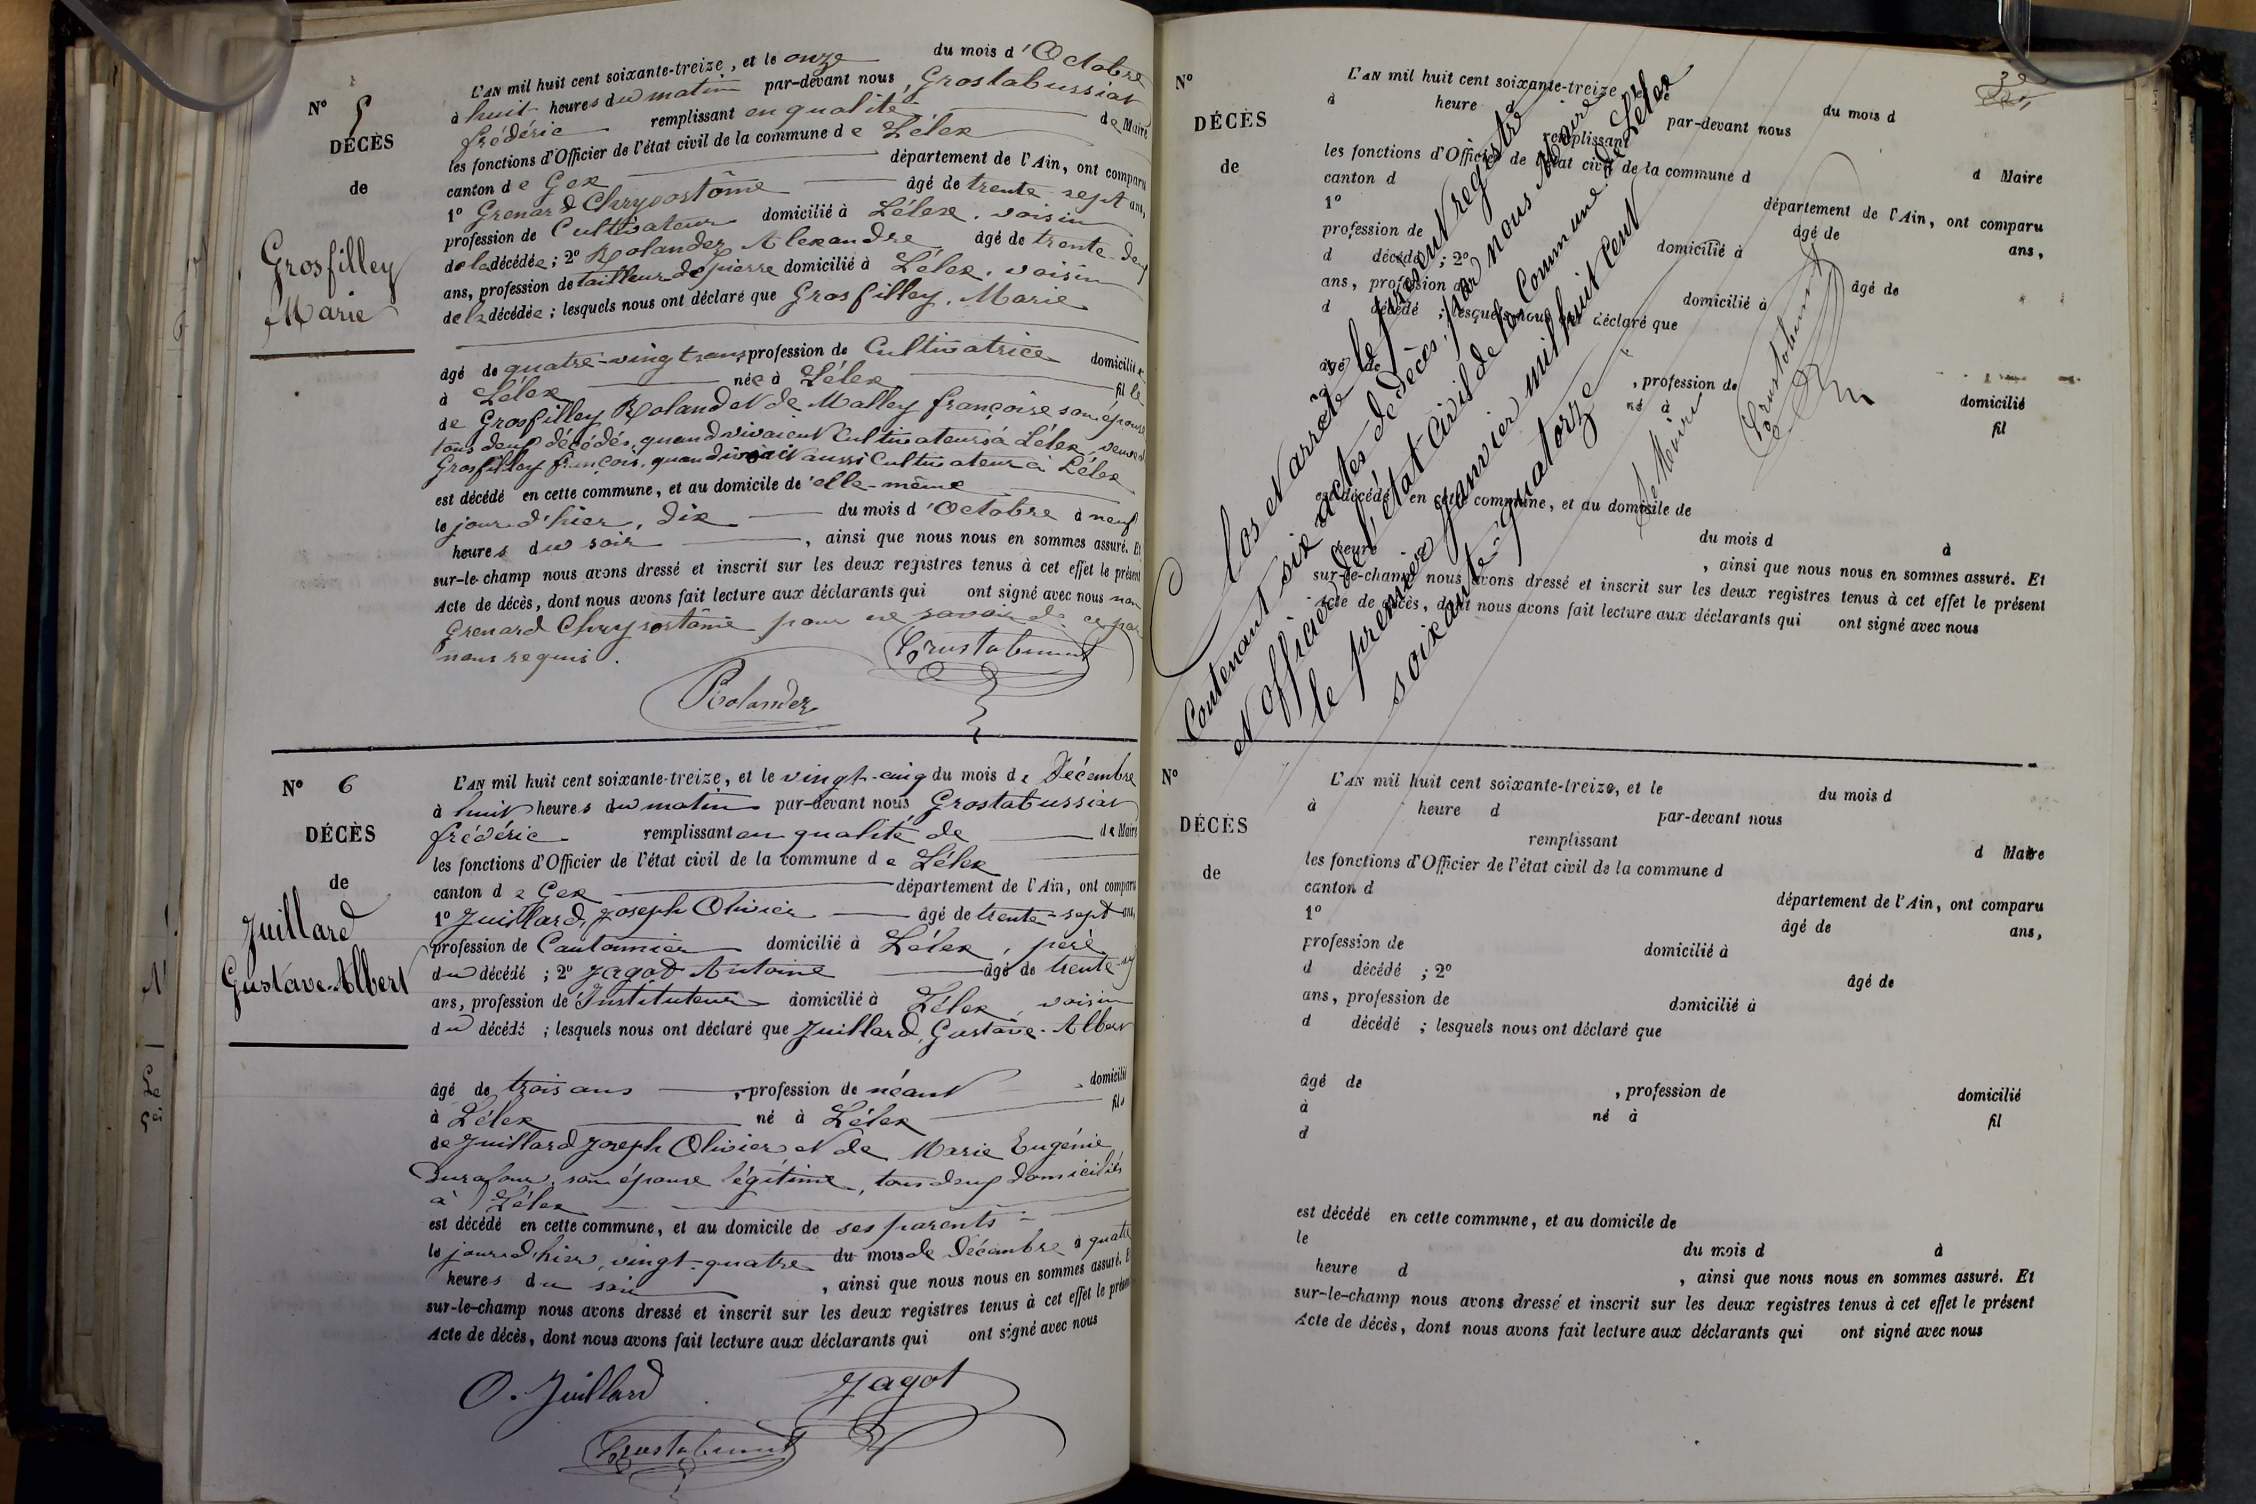 N° 5
DÉCÈS
de
Grosfilley
Marie
L'AN mil huit cent soixante-treize, et le onze du mois d'Octobre
à huit heures du matin par-devant nous Grostabussiat
frédéric remplissant en qualité de Maire
les fonctions d'Officier de l'état civil de la commune de Lélex
canton de Gex département de l'Ain, ont comparu
1° Grenard Chrysostôme âgé de trente-sept ans,
profession de Cultivateur domicilié à Lélex, voisin
de la décédée; 2° Rolandez Alexandre, âgé de trente-deux
ans, profession de tailleur de pierre domicilié à Lélex, voisin
de la décédée; lesquels nous ont déclaré que Grosfilley, Marie
âgé de quatre-vingt ans, profession de Cultivatrice domiciliée
à Lélex née à Lélex fille
de Grosfilley Roland et de Malley françoise son épouse
tous deux décédés, quand vivaient Cultivateurs à Lélex, veuve de
Grosfilley françois, quand vivait aussi Cultivateur à Lélex
est décédé en cette commune, et au domicile de elle-même
le jour d'hier, dix du mois d'Octobre à neuf
heures du soir, ainsi que nous nous en sommes assuré. Et
sur-le-champ nous avons dressé et inscrit sur les deux registres tenus à cet effet le présent
Acte de décès, dont nous avons fait lecture aux déclarants qui ont signé avec nous non
Grenard Chrysostôme pour ne savoir de ce par
nous requis.
Grostabussiat
Rolandez
N° 6
DÉCÈS
de
Juillard
Gustave-Albert
L'AN mil huit cent soixante-treize, et le vingt-cinq du mois de Décembre
à huit heures du matin par-devant nous Grostabussiat
frédéric remplissant en qualité de de Maire
les fonctions d'Officier de l'état civil de la commune de Lélex
canton de Gex département de l'Ain, ont comparu
1° Juillard, Joseph Olivier âgé de trente-sept ans,
profession de Cantonnier domicilié à Lélex, père
du décédé; 2° Jagot Antoine âgé de trente-
ans, profession de Instituteur domicilié à Lélex, voisin
du décédé; lesquels nous ont déclaré que Juillard, Gustave-Albert
âgé de trois ans, profession de néant, domicilié
à Lélex né à Lélex fils
de Juillard Joseph Olivier et de Marie Eugénie
Durafour, son épouse légitime, tous deux domiciliés
à Lélex
est décédé en cette commune, et au domicile de ses parents
le jour d'hier, vingt-quatre du mois de Décembre à quatre
heures du soir, ainsi que nous nous en sommes assuré. Et
sur-le-champ nous avons dressé et inscrit sur les deux registres tenus à cet effet le présent
Acte de décès, dont nous avons fait lecture aux déclarants qui ont signé avec nous
O. Juillard Jagot
Grostabussiat
N°
DÉCÈS
de
L'AN mil huit cent soixante-treize, et le du mois d
à heure d par-devant nous
remplissant d Maire
les fonctions d'Officier de l'état civil de la commune d
canton d département de l'Ain, ont comparu
1° âgé de ans,
profession de domicilié à
d décédé; 2° âgé de
ans, profession de domicilié à
d décédé; lesquels nous ont déclaré que
âgé de, profession de domicilié
né à fil
est décédé en cette commune, et au domicile de
du mois d à
heure, ainsi que nous nous en sommes assuré. Et
sur-le-champ nous avons dressé et inscrit sur les deux registres tenus à cet effet le présent
Acte de décès, dont nous avons fait lecture aux déclarants qui ont signé avec nous
Clos et arrêté le présent registre
Contenant six actes de décès, par nous Maire
et officier de l'état civil de la Commune de Lélex
le premier Janvier mil huit cent
soixante-quatorze
Le Maire
Grostabussiat
N°
DÉCÈS
de
L'AN mil huit cent soixante-treize, et le du mois d
à heure d par-devant nous
remplissant d Maire
les fonctions d'Officier de l'état civil de la commune d
canton d département de l'Ain, ont comparu
1° âgé de ans,
profession de domicilié à
d décédé; 2° âgé de
ans, profession de domicilié à
d décédé; lesquels nous ont déclaré que
âgé de, profession de domicilié
à né à fil
d
est décédé en cette commune, et au domicile de
le du mois d à
heure d, ainsi que nous nous en sommes assuré. Et
sur-le-champ nous avons dressé et inscrit sur les deux registres tenus à cet effet le présent
Acte de décès, dont nous avons fait lecture aux déclarants qui ont signé avec nous